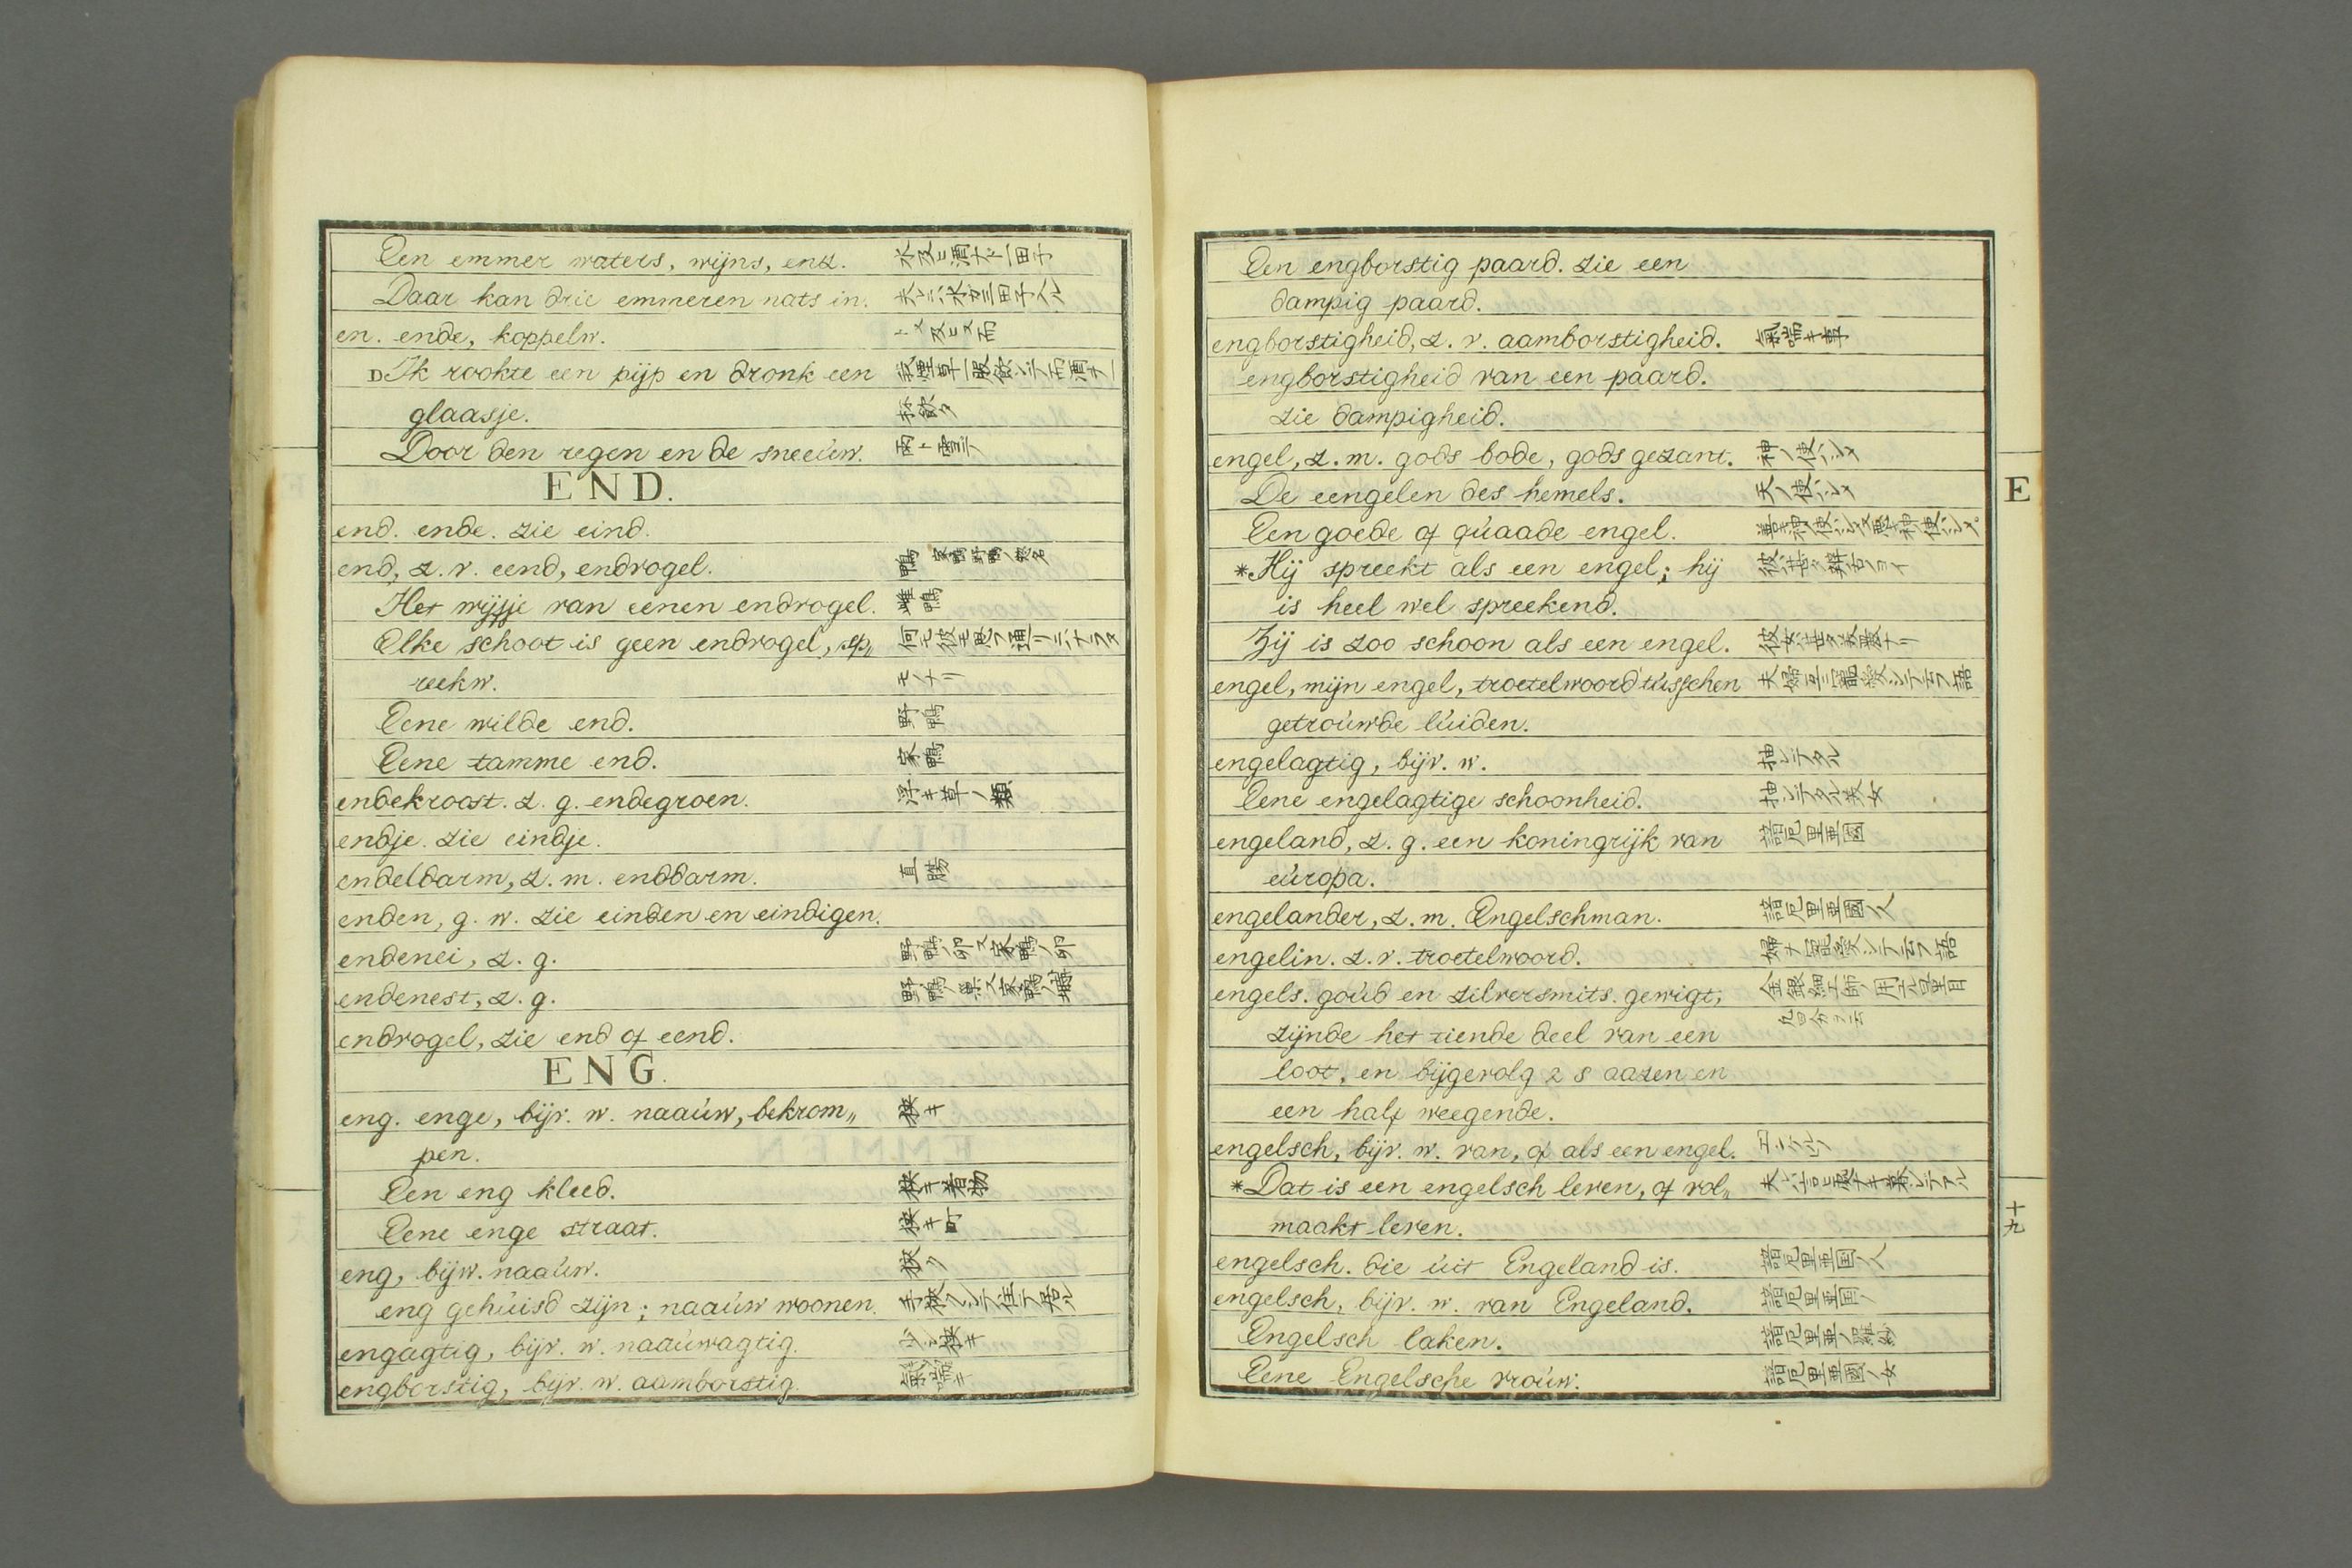 Een emmer waters, wijns, enz. 水又ヒ酒ナド一田子
Daar kan drie emmeren nats in. 夫レニハ水ガ三田子入ル
en. ende, koppelw. ト又及ヒ又而
DIk rookte een pijp en dronk een 我煙草一服飲シテ而酒ヲ一
glaasje. 杯飲タ
Door den regen en de sneeúw. 雨ト雪デ
END.
end. ende. zie eind.
end, z. v. eend, endvogel. 鴨 家鴨野鴨ノ惣名
Het wijfje van eenen endvogel. 雌鴨
Elke schoot is geen endvogel, sp„ 何モ彼モ思フ通リニナラヌ
reekw. モノナリ
Eene wilde end. 野鴨
Eene tamme end. 家鴨
endekroost. z. g. endegroen. 浮キ草ノ類
endje. zie eindje.
endeldarm, z. m. enddarm. 直腸
enden, g. w. zie einden en eindigen.
endenei, z. g. 野鴨ノ卵又家鴨ノ卵
endenest, z. g. 野鴨ノ巣又家鴨ノ塒
endvogel, zie end of eend.
ENG.
eng. enge, bijv. w. naaúw, bekrom„ 狭キ
pen.
Een eng kleed. 狭キ着物
Eene enge straat. 狭キ町
eng, bijw. naaúw. 狭ク
eng gehúisd zijn; naaúw woonen. 手狭クシテ住テ居ル
engagtig, bijv. w. naaúwagtig. 少シ狭キ
engborstig, bijv. w. aamborstig. 氣喘キ
Een engborstig paard. zie een
dampig paard.
engborstigheid, z. v. aamborstigheid. 氣喘キ事
engborstigheid van een paard.
zie dampigheid.
engel, z. m. gods bode, gods gezant. 神ノ使ハシメ
De eengelen des hemels. 天ノ使ハシメ
Een goede of qúaade engel. 善神ノ使ハシメ又悪神ノ使ハシメ
E
*Hij spreekt als een engel; hij 彼ハ甚タ辨舌ヨイ
is heel wel spreekend.
Zij is zoo schoon als een engel. 彼女ハ甚タ美麗ナリ
engel, mijn engel, troetelwoord tússchen 夫婦互ニ寵愛シテ云フ語
getroúwde lúiden.
engelagtig, bijv. w. 抽シデタル
Eene engelagtige schoonheid. 抽シデタル美女
engeland, z. g. een koningrijk van 諳厄里亜國
eúropa.
engelander, z. m. Engelschman. 諳厄里亜國ノ人
engelin. z. v. troetelwoord. 婦ヲ寵愛シテ云フ語
engels. goúd en zilversmits. gewigt, 金銀細工師ノ用ル量目
zijnde het tiende deel van een
loot, en bijgevolg 2 8 aazen en
een half weegende.
engelsch, bijv. w. van, of als een engel. エンゲルノ
*Dat is een engelsch leven, of vol„
maakt leven.
十九
engelsch. die úit Engeland is. 諳厄里亜国ノ人
engelsch, bijv. w. van Engeland. 諳厄里亜国ノ
Engelsch laken. 諳厄里亜ノ羅紗
Eene Engelsche vroúw. 諳厄里亜國ノ女